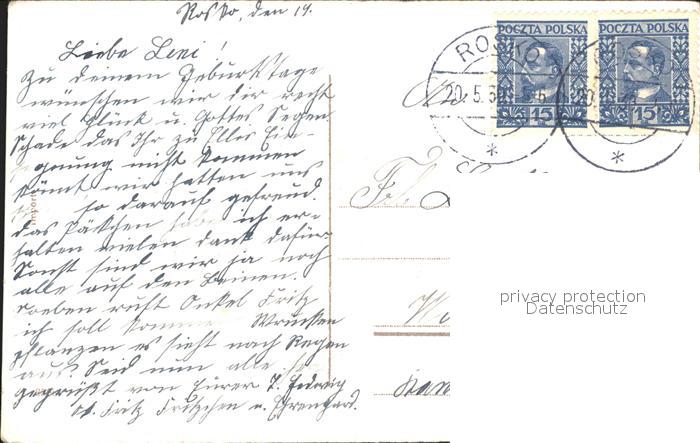 Rosko, den 19.
Liebe Leni!
Zu deinem Geburtstage
wünschen wir dir recht
viel Glück u. Gottes Segen.
Schade das Ihr zu Elles Ein-
segnung nicht kommen
könnt wir hatten uns
so darauf gefreud.
das Päckchen habe ich er-
halten vielen dank dafür.
Sonst sind wir ja noch
alle auf den Beinen.
soeben ruft Onkel Fritz
ich soll kommen Wrucken
pflanzen es sieht nach Regen
aus. Seid nun alle
gegrüßt von Eurer T. Hedwig
O. Fritz Fritzchen u. Ehrengard.
POCZTA POLSKA
15
POCZTA POLSKA
15
ROSKO
20.5.
Frl. L
privacy protection
Datenschutz